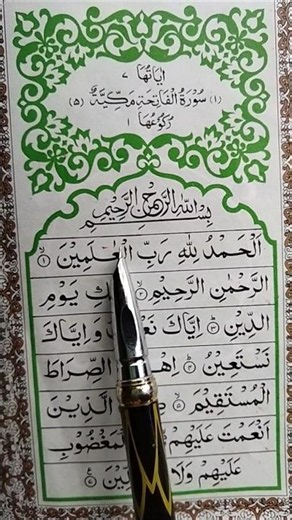 اٰیَاتُهَا ٧
(١) سُوْرَةُ الْفَاتِحَةِ مَكِّيَّةٌ (٥)
رُكُوْعُهَا ١
بِسْمِ اللهِ الرَّحْمٰنِ الرَّحِيْمِ
اَلْحَمْدُ لِلّٰهِ رَبِّ الْعٰلَمِيْنَ ۙ﴿١﴾
الرَّحْمٰنِ الرَّحِيْمِ ۙ﴿٢﴾ يَوْمِ
الدِّيْنِ ؕ﴿٣﴾ اِيَّاكَ وَ اِيَّاكَ
نَسْتَعِيْنُ ؕ﴿٤﴾ الصِّرَاطَ
الْمُسْتَقِيْمَ ۙ﴿٥﴾ الَّذِيْنَ
اَنْعَمْتَ عَلَيْهِمْ الْمَغْضُوْبِ
عَلَيْهِمْ وَلَا ﴿٧﴾